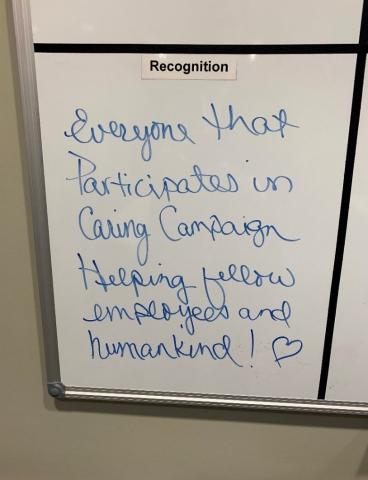 Recognition
Everyone that
Participates in
Caring Campaign
Helping fellow
employees and
humankind! ♡